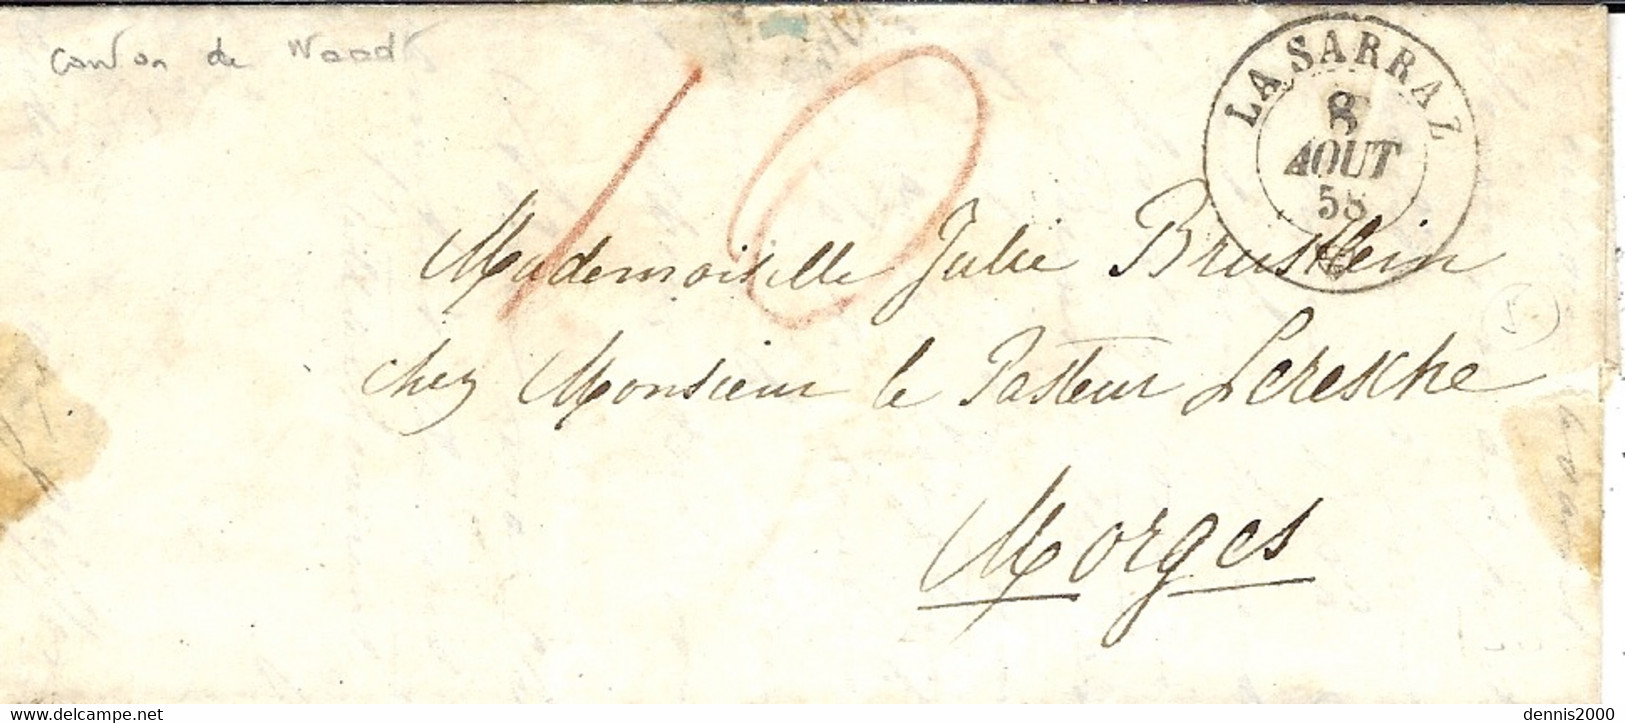 canton de Waad
10
LA SARRAZ
8
AOUT
58
Mademoiselle Julie Brustlein
chez Monsieur le Pasteur Leresche
Morges
www.delcampe.net
dennis2000